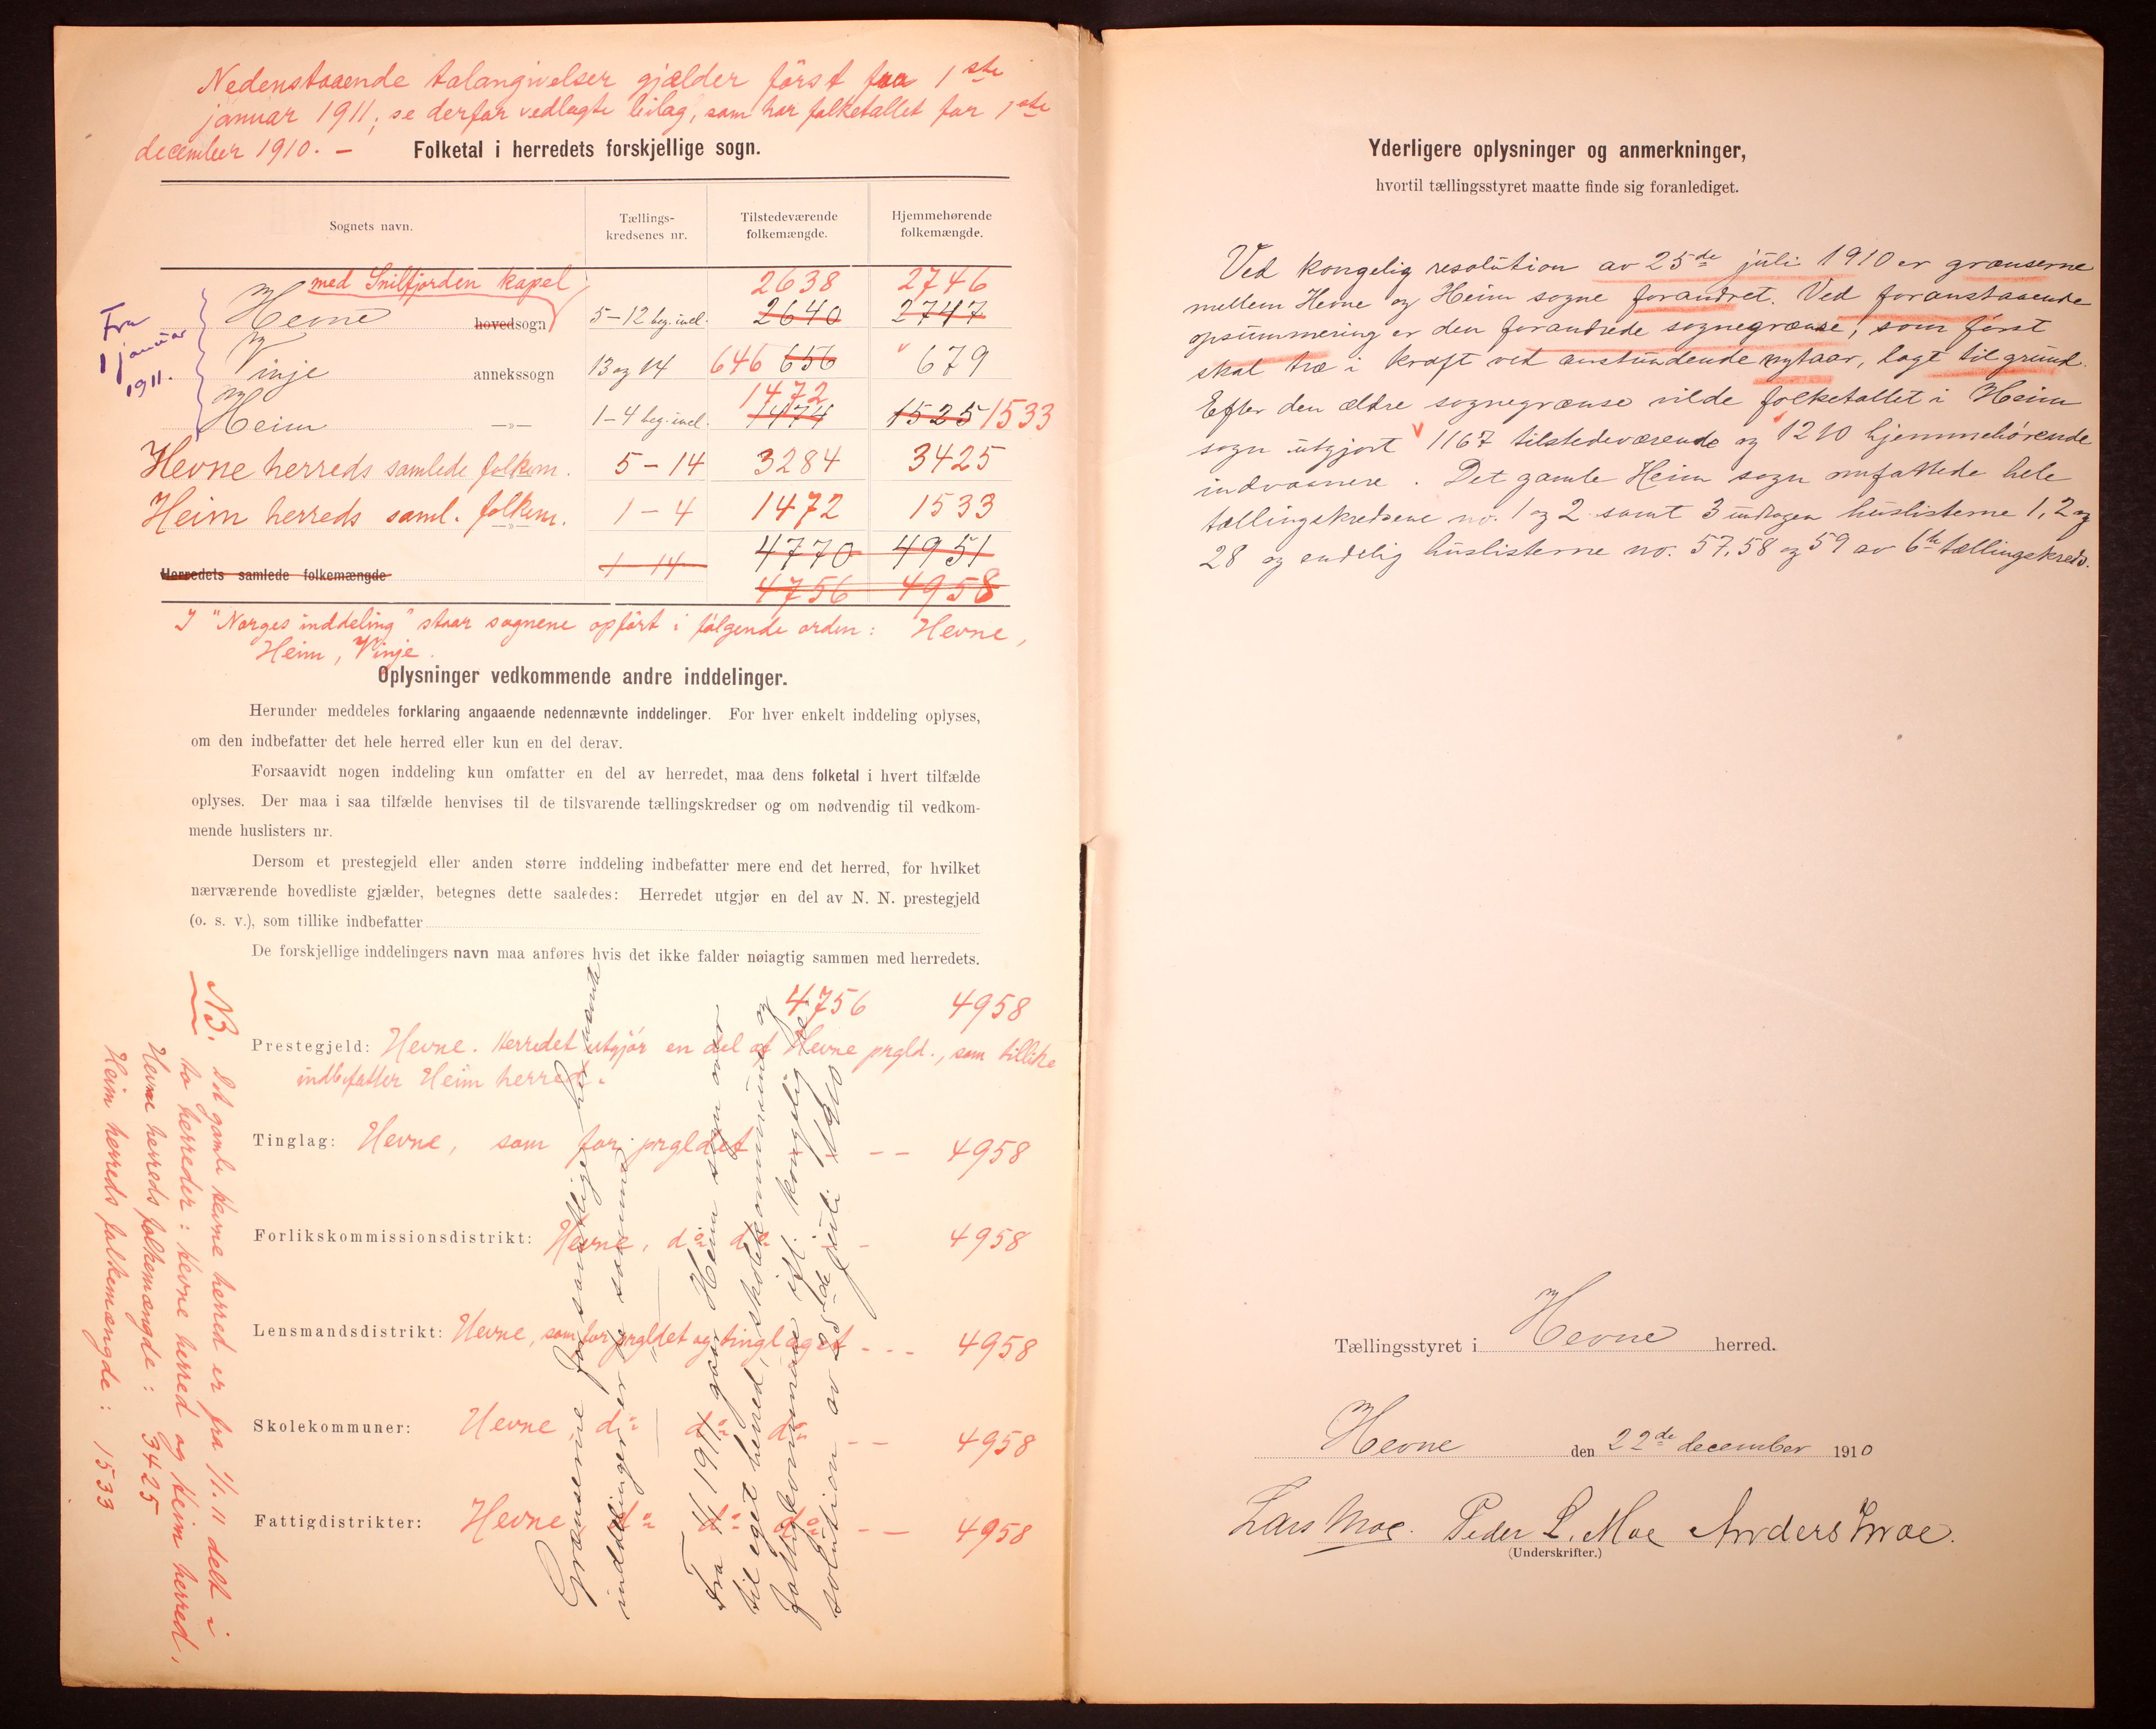 Nedenstaaende talangivelser gjælder först fra 1ste
januar 1911; se derfor vedlagte bilag, som har folketallet for 1ste
december 1910. –
Folketal i herredets forskjellige sogn.
Sognets navn.
Tællings-
kredsenes nr.
Tilstedeværende
folkemængde.
Hjemmehørende
folkemængde.
med Snilfjorden kapel 2638 2746
Hevne hovedsogn 5–12 beg. incl. 2640 2747
Vinje annekssogn 13 og 14 646 656 679
1472
Heim —»— 1–4 beg. incl. 1474 1525 1533
Fra
1 januar
1911.
Hevne herreds samlede folkem. 5–14 3284 3425
Heim herreds saml. folkem. 1–4 1472 1533
4770 4951
Herredets samlede folkemængde 1–14
4756 4958
I "Norges inddeling" staar sognene opført i følgende orden: Hevne,
Heim, Vinje.
Oplysninger vedkommende andre inddelinger.
Herunder meddeles forklaring angaaende nedennævnte inddelinger. For hver enkelt inddeling oplyses,
om den indbefatter det hele herred eller kun en del derav.
Forsaavidt nogen inddeling kun omfatter en del av herredet, maa dens folketal i hvert tilfælde
oplyses. Der maa i saa tilfælde henvises til de tilsvarende tællingskredser og om nødvendig til vedkom-
mende huslisters nr.
Dersom et prestegjeld eller anden større inddeling indbefatter mere end det herred, for hvilket
nærværende hovedliste gjælder, betegnes dette saaledes: Herredet utgjør en del av N. N. prestegjeld
(o. s. v.), som tillike indbefatter
De forskjellige inddelingers navn maa anføres hvis det ikke falder nøiagtig sammen med herredets.
4756 4958
Prestegjeld: Hevne. Herredet utgjör en del af Hevne prgld., som tillike
indbefatter Heim herred.
Tinglag: Hevne, som for prgldet – – 4958
Forlikskommissionsdistrikt: Hevne, do do – 4958
Lensmandsdistrikt: Hevne, som for prgldet og tinglaget – – – 4958
Skolekommuner: Hevne do do do – – 4958
Fattigdistrikter: Hevne do do do – – 4958
Grænserne for samtlige her nævnte
inddelinger er de samme.
Fra 1/1 1911 gaar Heim sogn over
til eget herred, skolekommune og
fattigkommune ifl. kongelig re-
solution av 25de juli 1910
NB. Det gamle Hevne herred er fra 1/1. 11 delt i
to herreder: Hevne herred og Heim herred,
Hevne herreds folkemængde: 3425
Heim herreds folkemængde: 1533
Yderligere oplysninger og anmerkninger,
hvortil tællingsstyret maatte finde sig foranlediget.
Ved kongelig resolution av 25de juli 1910 er grænserne
mellem Hevne og Heim sogne forandret. Ved foranstaaende
opsummering er den forandrede sognegrænse, som först
skal træ i kraft ved anstundende nytaar, lagt til grund.
Efter den ældre sognegrænse vilde folketallet i Heim
sogn utgjort 1167 tilstedeværende og 1210 hjemmehörende
indvaanere. Det gamle Heim sogn omfattede hele
tællingskredsene no. 1 og 2 samt 3 undtagen huslisterne 1, 2 og
28 og endelig huslisterne no. 57, 58 og 59 av 6te tællingskreds.
Tællingsstyret i Hevne herred.
Hevne den 22de december 1910
Lars Moe. Peder L. Moe Anders Moe.
(Underskrifter.)